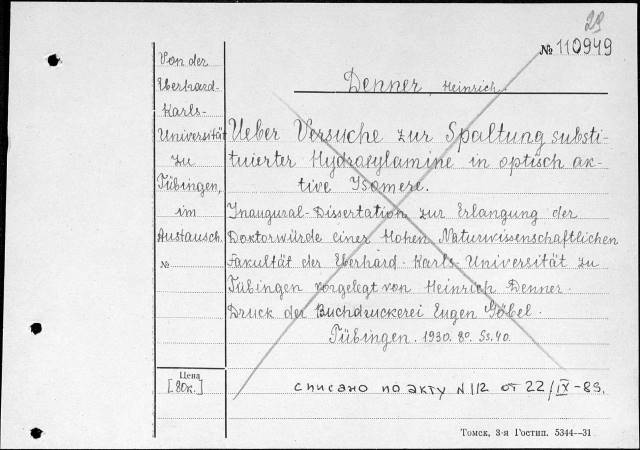 29
№ 110949
Von der
Eberhard-
Karls-
Universität
zu
Tübingen,
im
Austausch.
№
Denner, Heinrich.
Ueber Versuche zur Spaltung substi-
tuierter Hydroxylamine in optisch ak-
tive Isomere.
Inaugural-Dissertation zur Erlangung der
Doktorwürde einer Hohen Naturwissenschaftlichen
Fakultät der Eberhard-Karls-Universität zu
Tübingen vorgelegt von Heinrich Denner.
Druck der Buchdruckerei Eugen Göbel.
Tübingen. 1930. 8o. Ss. 40.
Цена
[80к.]
списано по акту N 112 от 22/IX-89.
Томск, 3-я Гостип. 5344—31